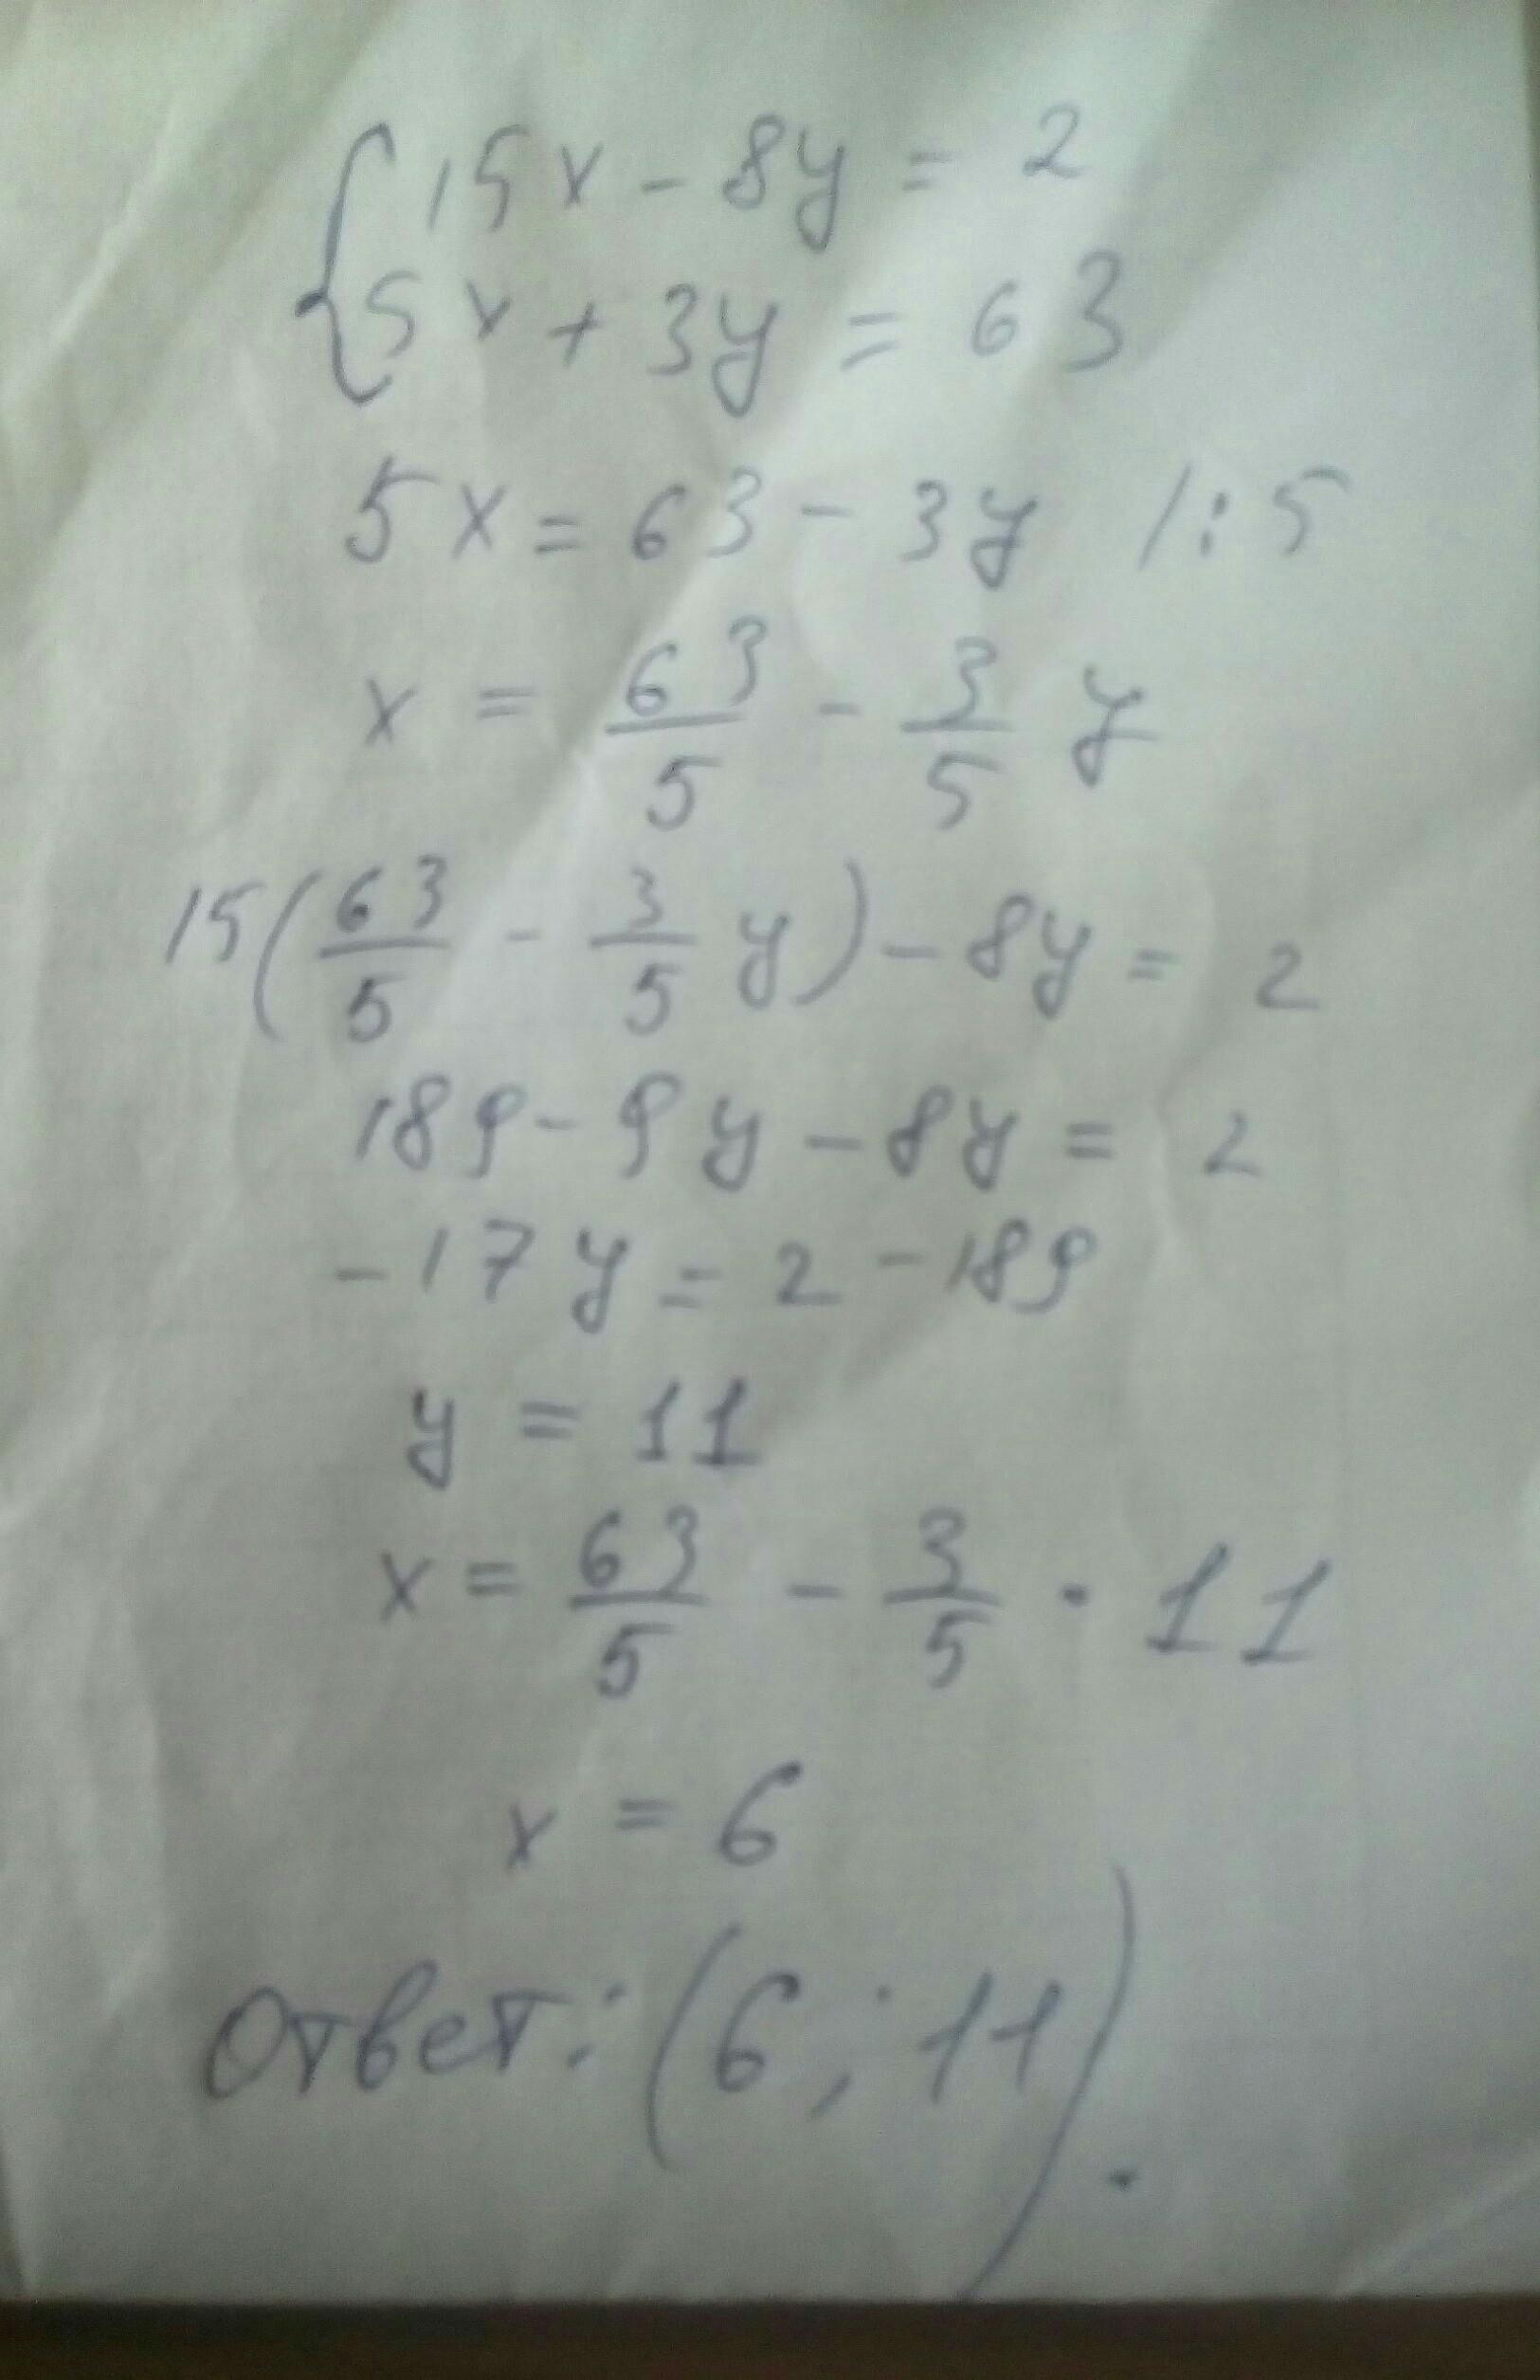 {15x - 8y = 2
5x + 3y = 63
5x = 63 - 3y /:5
x = 63/5 - 3/5 y
15(63/5 - 3/5 y) - 8y = 2
189 - 9y - 8y = 2
-17y = 2 - 189
y = 11
x = 63/5 - 3/5 · 11
x = 6
Ответ: (6; 11).